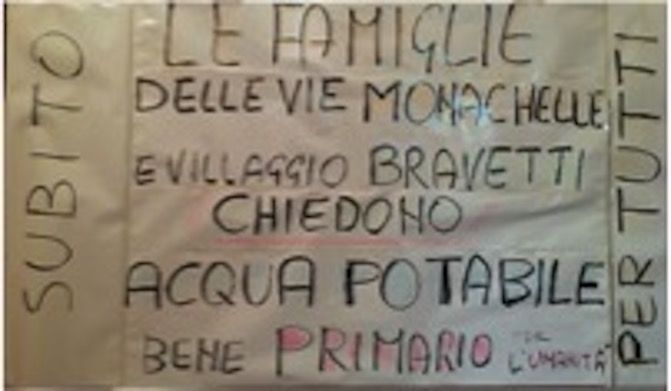 SUBITO
LE FAMIGLIE
DELLE VIE MONACHELLE
E VILLAGGIO BRAVETTI
CHIEDONO
ACQUA POTABILE
BENE PRIMARIO
L'UMANITÀ
PER TUTTI